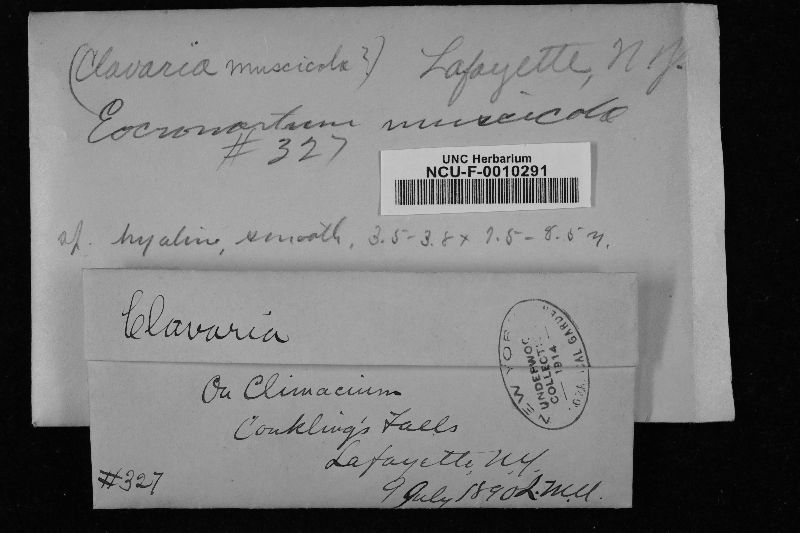 (Clavaria muscicola?) Lafayette, N.Y.
Eocronartium muscicola
# 327
UNC Herbarium
NCU-F-0010291
sp. hyaline, smooth, 3.5-3.8 x 7.5-8.5 µ.
Clavaria
NEW YORK BOTANICAL GARDEN
UNDERWOOD
COLLECTION
1914
On Climacium
Conkling's Falls
Lafayette, N.Y.
#327
9 July 1890 L.M.U.